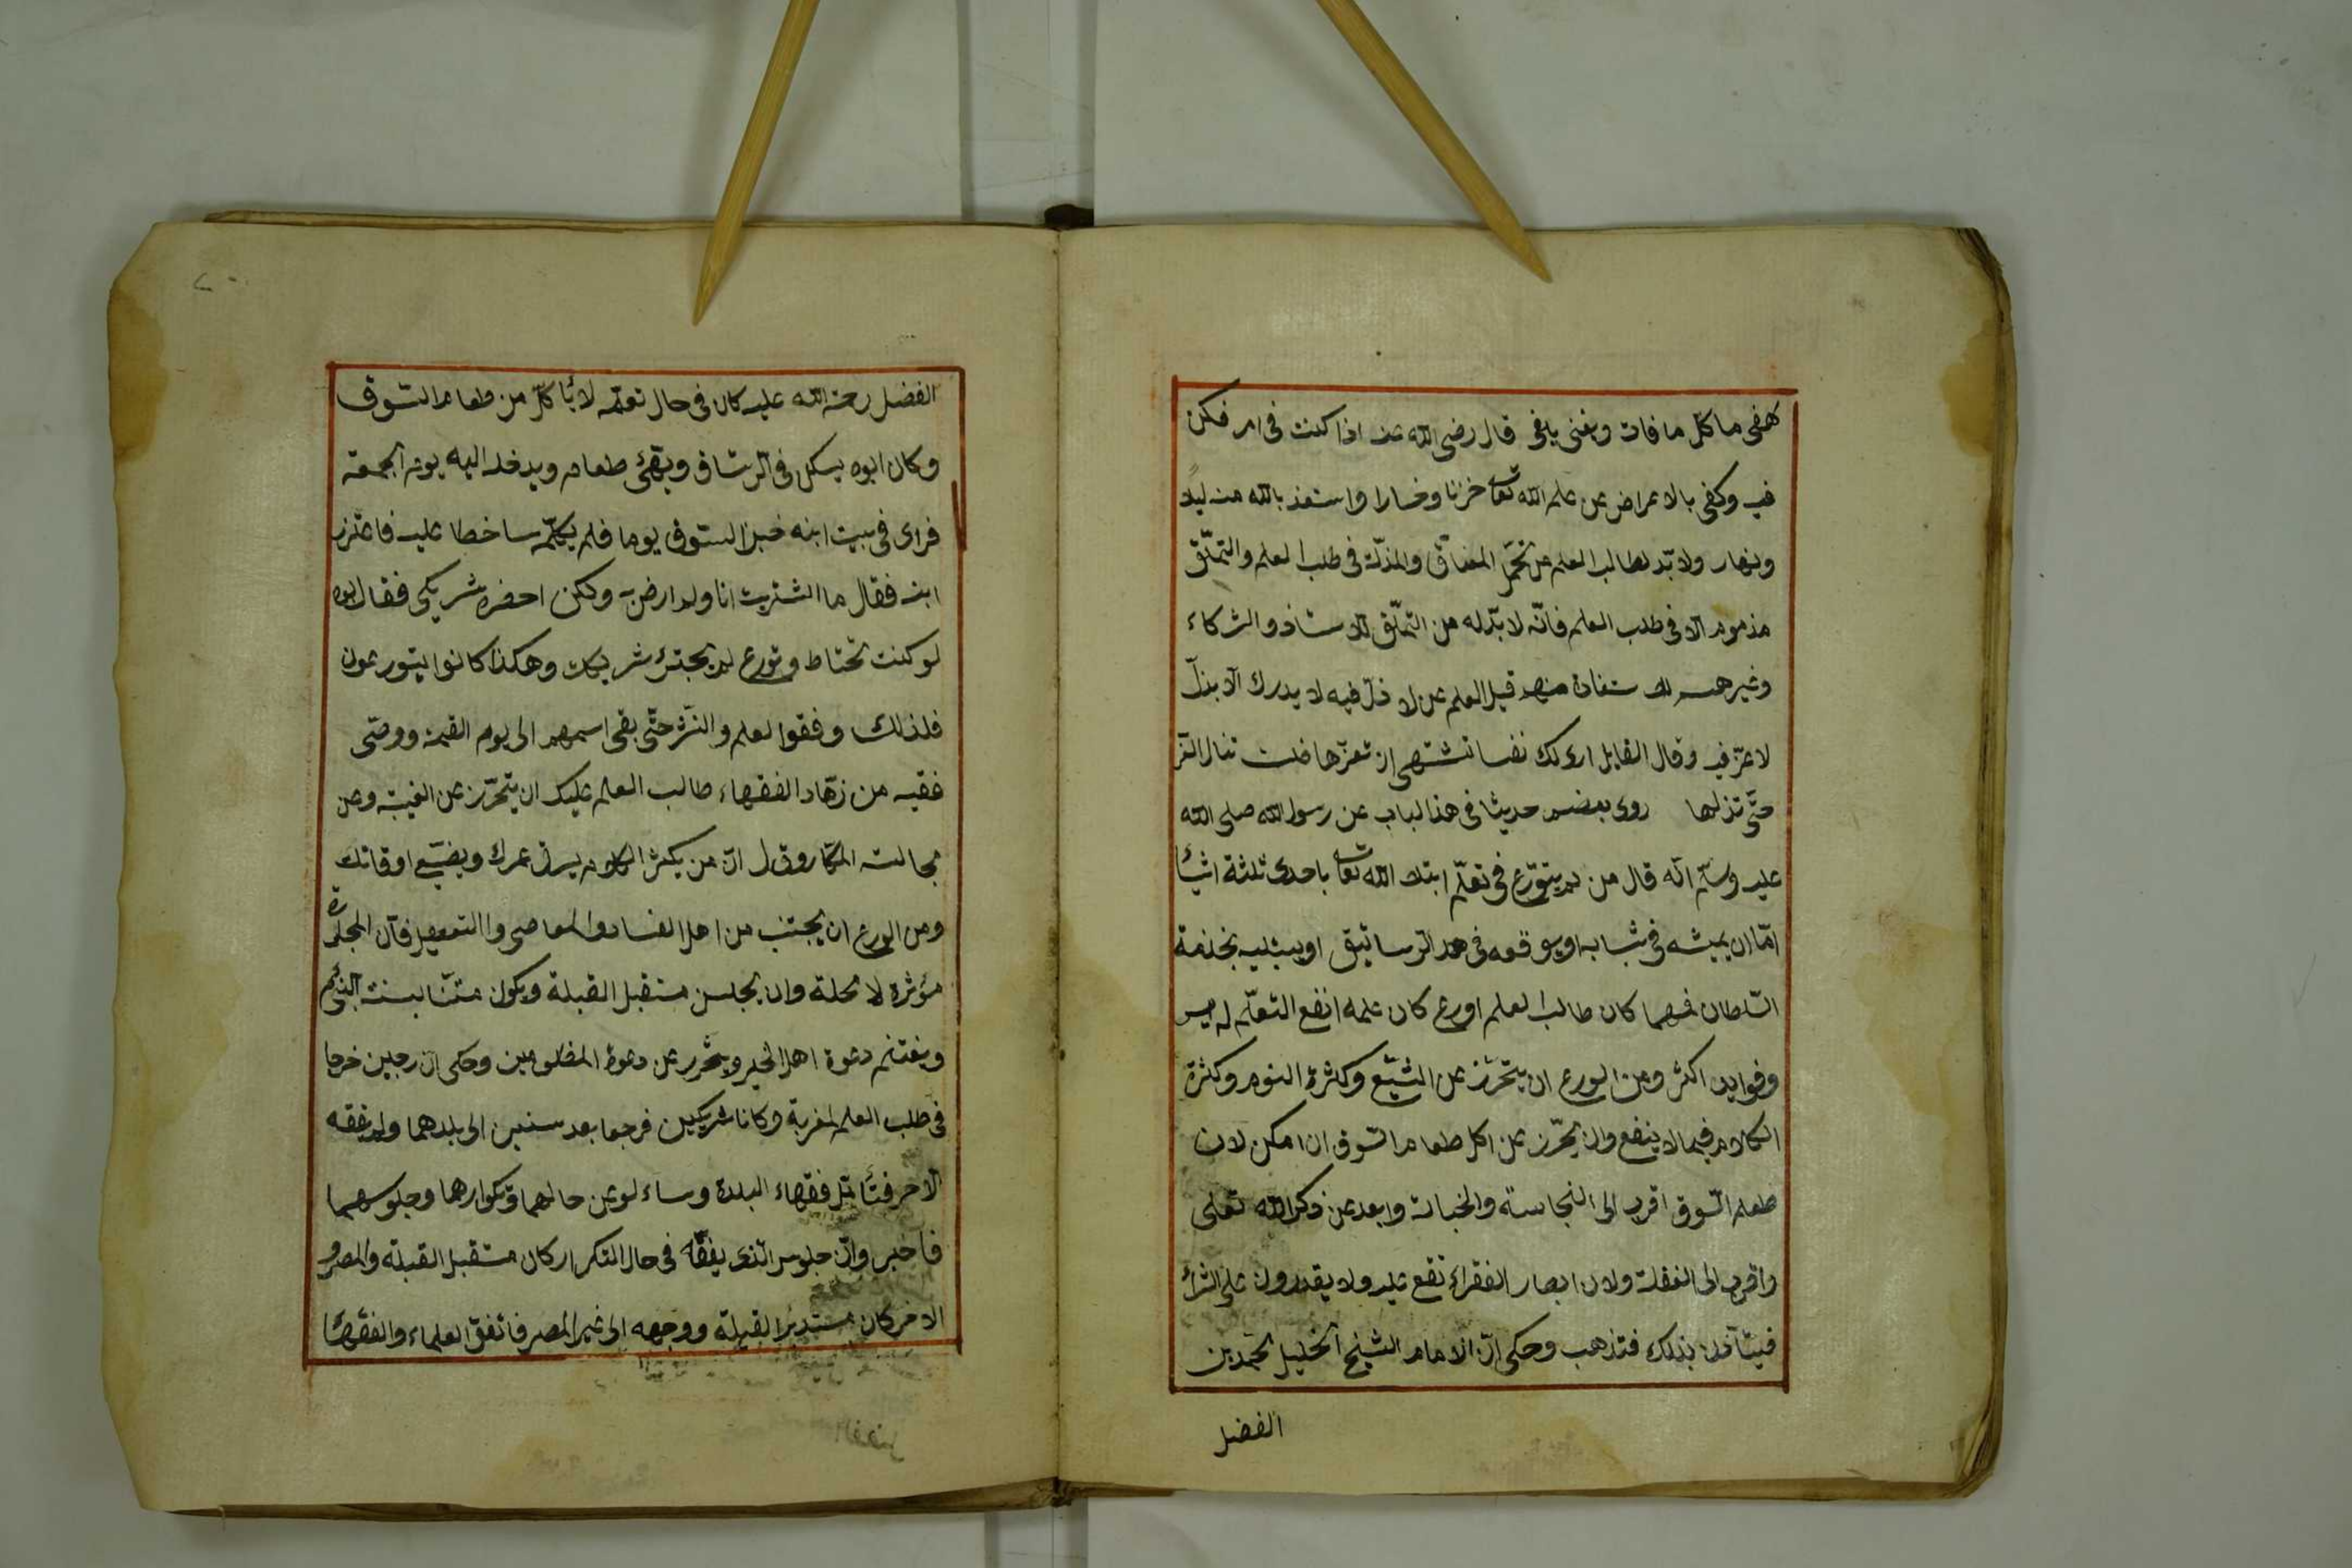 كهفى ما كل ما فات ويغنى يلفى قال رضى الله عنه اذا كنت فى امر فكن
فيه وكفى بالاعراض عن علم الله تعا خزنا وخسارا واستعذ بالله منه ليلا
ونهار ولا بّد لطالب العلم من تحمّل المضاقّ والمذلّة فى طلب العلم والتملّق
مذموم الا فى طلب العلم فانّه لا بدّ له من التملّق للاستاذ والشركاء
وغيرهم للاستفادة منهم قيل العلم عن لا ذلّ فيه لا يدرك الّا بذلّ
لا عزّ فيه وقال القايل ارى لك نفسا تشتهى ان تعزّها فلست تنال العز
حتّى تذلها روى بعضهم حديثا فى هذا لباب عن رسول الله صلى الله
عليه وسلّم انّه قال من لم يتورّع فى تعلّم ابتلاه الله تعا باحدى ثلثة اشيأ
امّا ان يميته فى شبابه او يوقعه فى الرساتيق او يبتليه بخدمة
السّلطان فمهما كان طالب العلم اورع كان علمه انفع التعلّم له ايسر
وفوايده اكثر ومن الورع ان يتحرّز عن الشبّع وكثرة النوم وكثرة
الكلام فيما لا ينفع وان يتحرّز عن اكل طعام السّوق ان امكن لان
طعام السّوق اقرب الى النجاسة والخباثة وابعد عن ذكر الله تعلى
واقرب الى الغفلة ولان ابصار الفقراء تقع عليه ولا يقدرون على الشرأ
فيتأذن بذلك فتذهب وحكى انّ الامام الشيخ الجليل محّمد بن
الفضل
الفضل رحمة الله عليه كان فى حال تعلّمه لا يأكل من طعام السّوق
وكان ابوه يسكن فى الرستاق ويهّئ طعامه ويدخل اليه يوم الجمعة
فراى فى بيت ابنه خبز السّوق يوما فلم يكلّمه ساخطا عليه فاعتزر
ابنه فقال ما اشتريت انا ولم ارض به ولكن احضره شريكى فقال ابوه
لو كنت تحتاط وتورع لم يجترئ شريكك وهكذا كانوا يتورعون
فلذلك وفقوا لعلم والنشّر حتّى بقى اسمهم الى يوم القيمة ووصّى
فقيه من زهّاد الفقهاء طالب العلم عليك ان يتحرّز عن الغيبة وعن
مجالسة المكثار وقال انّ من يكثر الكلام يسرق عمرك ويضيّع اوقاتك
ومن الورع ان يجتنب من اهل الفساد والمعاصى واالتعطيل فانّ المجاورة
مؤثرة لا محلة وان يجلس مستقبل القبلة ويكون متنّا بسنة النبّى
ويغتنم دعوة اهل الخير ويتحّرر عن دعوة المظلومين وحكى انّ رجلين خرجا
فى طلب العلم لغربة وكانا شريكين فرجعا بعد سنين الى بلدهما ولم يفقه
الاخر فتأمّل فقهاء البلدة وساءلو عن حالهما وتكرارهما وجلوسهما
فاخبر وانّ جلوس الّذى يفقّه فى حال التكرار كان مستقبل القبلة والمصر
الاخر كان مستدبر القبلة ووجهه الى غير المصر فاتفقّ العلماء والفقهأ